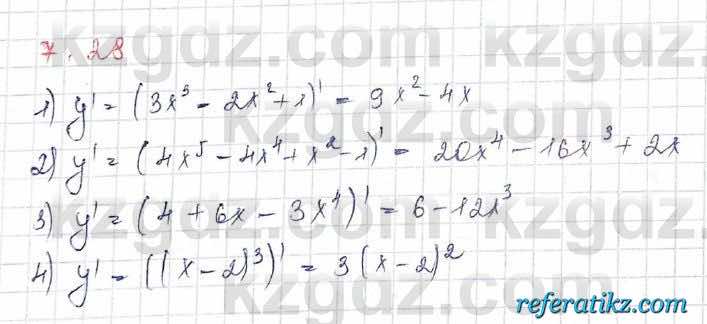 7.28
1) y' = (3x³ - 2x² + 1)' = 9x² - 4x
2) y' = (4x⁵ - 4x⁴ + x² - 1)' = 20x⁴ - 16x³ + 2x
3) y' = (4 + 6x - 3x⁴)' = 6 - 12x³
4) y' = ((x - 2)³)' = 3(x - 2)²
kzgdz.com
referatikz.com